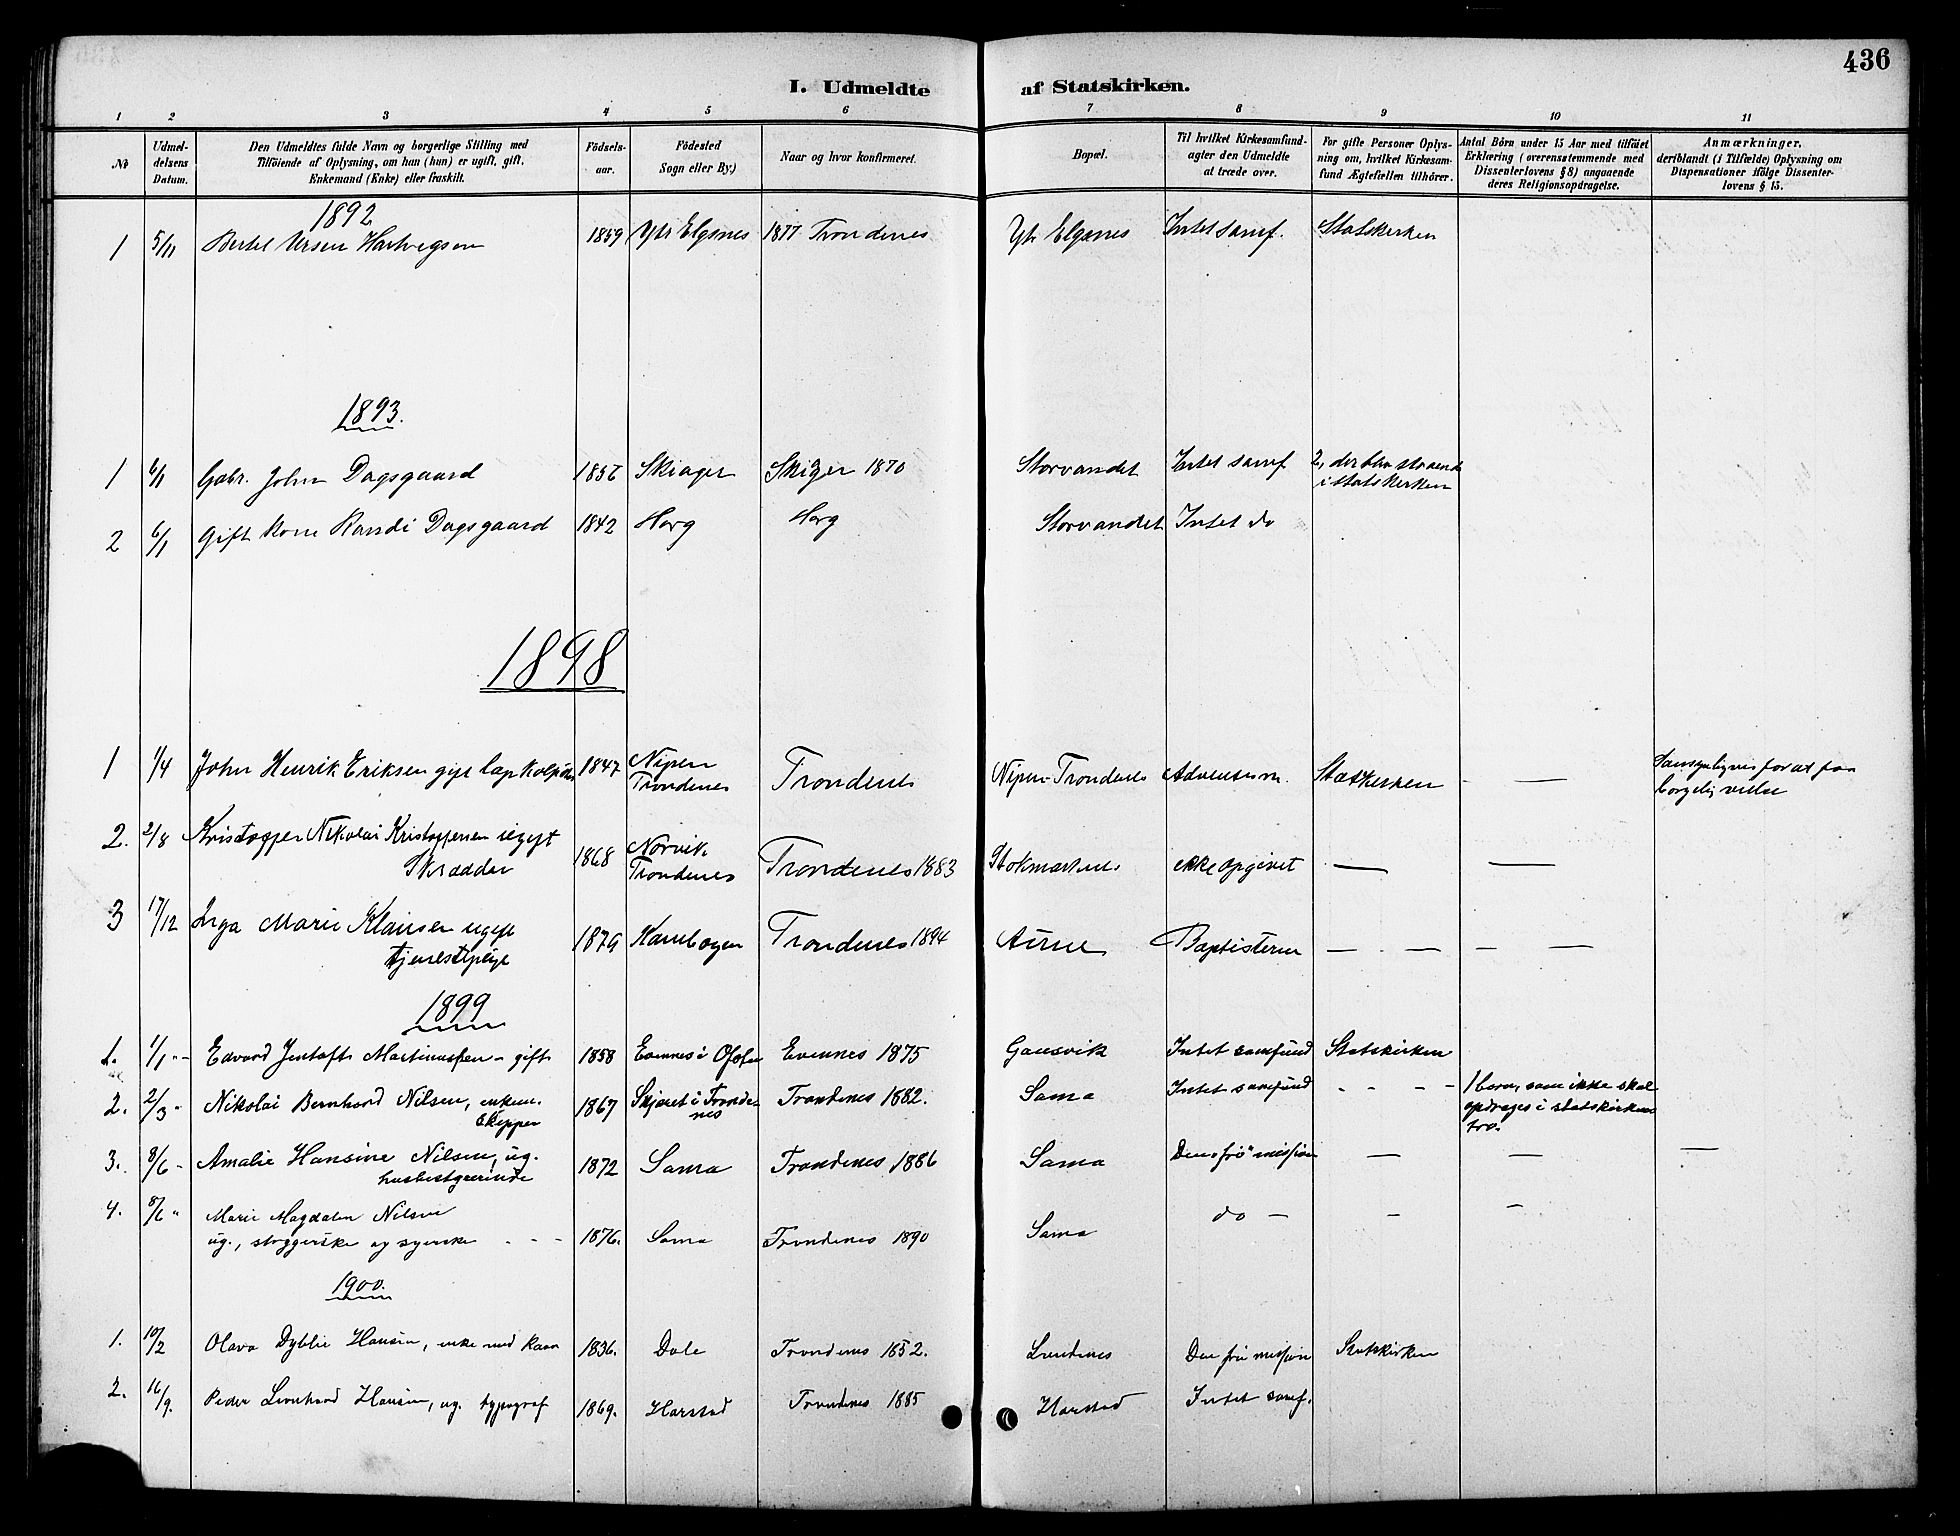 436
I. Udmeldte af Statskirken.
1 2 3 4 5 6 7 8 9 10 11
No
Udmel-
delsens
Datum.
Den Udmeldtes fulde Navn og borgerlige Stilling med
Tilföiende af Oplysning, om han (hun) er ugift, gift,
Enkemand (Enke) eller fraskilt.
Födsels-
aar.
Födested
Sogn eller By.)
Naar og hvor konfirmeret.
Bopæl.
Til hvilket Kirkesamfund-
agter den Udmeldte
at træde over.
For gifte Personer Oplys-
ning om, hvilket Kirkesam-
fund Ægtefællen tilhörer.
Antal Börn under 15 Aar med tilföiet
Erklæring (overensstemmende med
Dissenterlovens § 8) angaaende
deres Religionsopdragelse.
Anmærkninger,
deriblandt (i Tilfælde) Oplysning om
Dispensationer ifölge Dissenter-
lovens § 15.
1892
1 5/11 Bertel Ursen Hartvigsen 1859 Ytr Elgsnes 1877 Trondenes Ytr Elgsnes Intet samf. Statskirken
1893.
1 6/1 Gabr. John Dagsgaard 1856 Skiager Skiger 1870 Storvandet Intet samf 2, der blir staaende
i statskirken
2 6/1 Gift kone Randi Dagsgaard 1842 Horg Horg Storvandet Intet do
1898
1 1/4 John Henrik Eriksen gift lap 1847 Nipen
Trondenes Trondenes Nipen Trondenes Adventism. Statskirken — —
for at faa
borgelig vielse
2. 2/8 Kristoffer Nikolai Kristoffersen ugift
Skrædder 1868 Norvik
Trondenes Trondenes 1883 Stokmarknes ikke opgivet — —
3 17/12 Inga Marie Klausen ugift
tjenestepige 1879 Kanebogen Trondenes 1894 Aune Baptisterne — — — —
1899
1. 1/1 Edvard Jentoft Martinussen - gift 1858 Evennes i Ofoten Evennes 1875 Gausvik Intet samfund Statskirken
2. 2/3 Nikolai Bernhard Nilsen, enkem.
Skipper 1867 Skjæret i Tronde-
nes Trondenes 1882. Sama Intet samfund - - - - 1 barn, som ikke skal
opdrages i statskirkens
tro.
3. 8/6 Amalie Hansine Nilsen, ug.
husbestyrerinde 1872 Sama Trondenes 1886 Sama Den "fri" missjon — — —
4. 8/6 Marie Magdalen Nilsen
ug., stryggerske og syerske - - - 1876. Sama Trondenes 1890 Sama do - - -
1900.
1. 10/2 Olava Dyblie Hansen, enke med kaar 1836. Dale Trondenes 1852. Lundenes Den fri missjon Statskirken
2. 16/9. Peder Leonhard Hansen, ug. typograf 1869. Harstad Trondenes 1885 Harstad Intet samf.